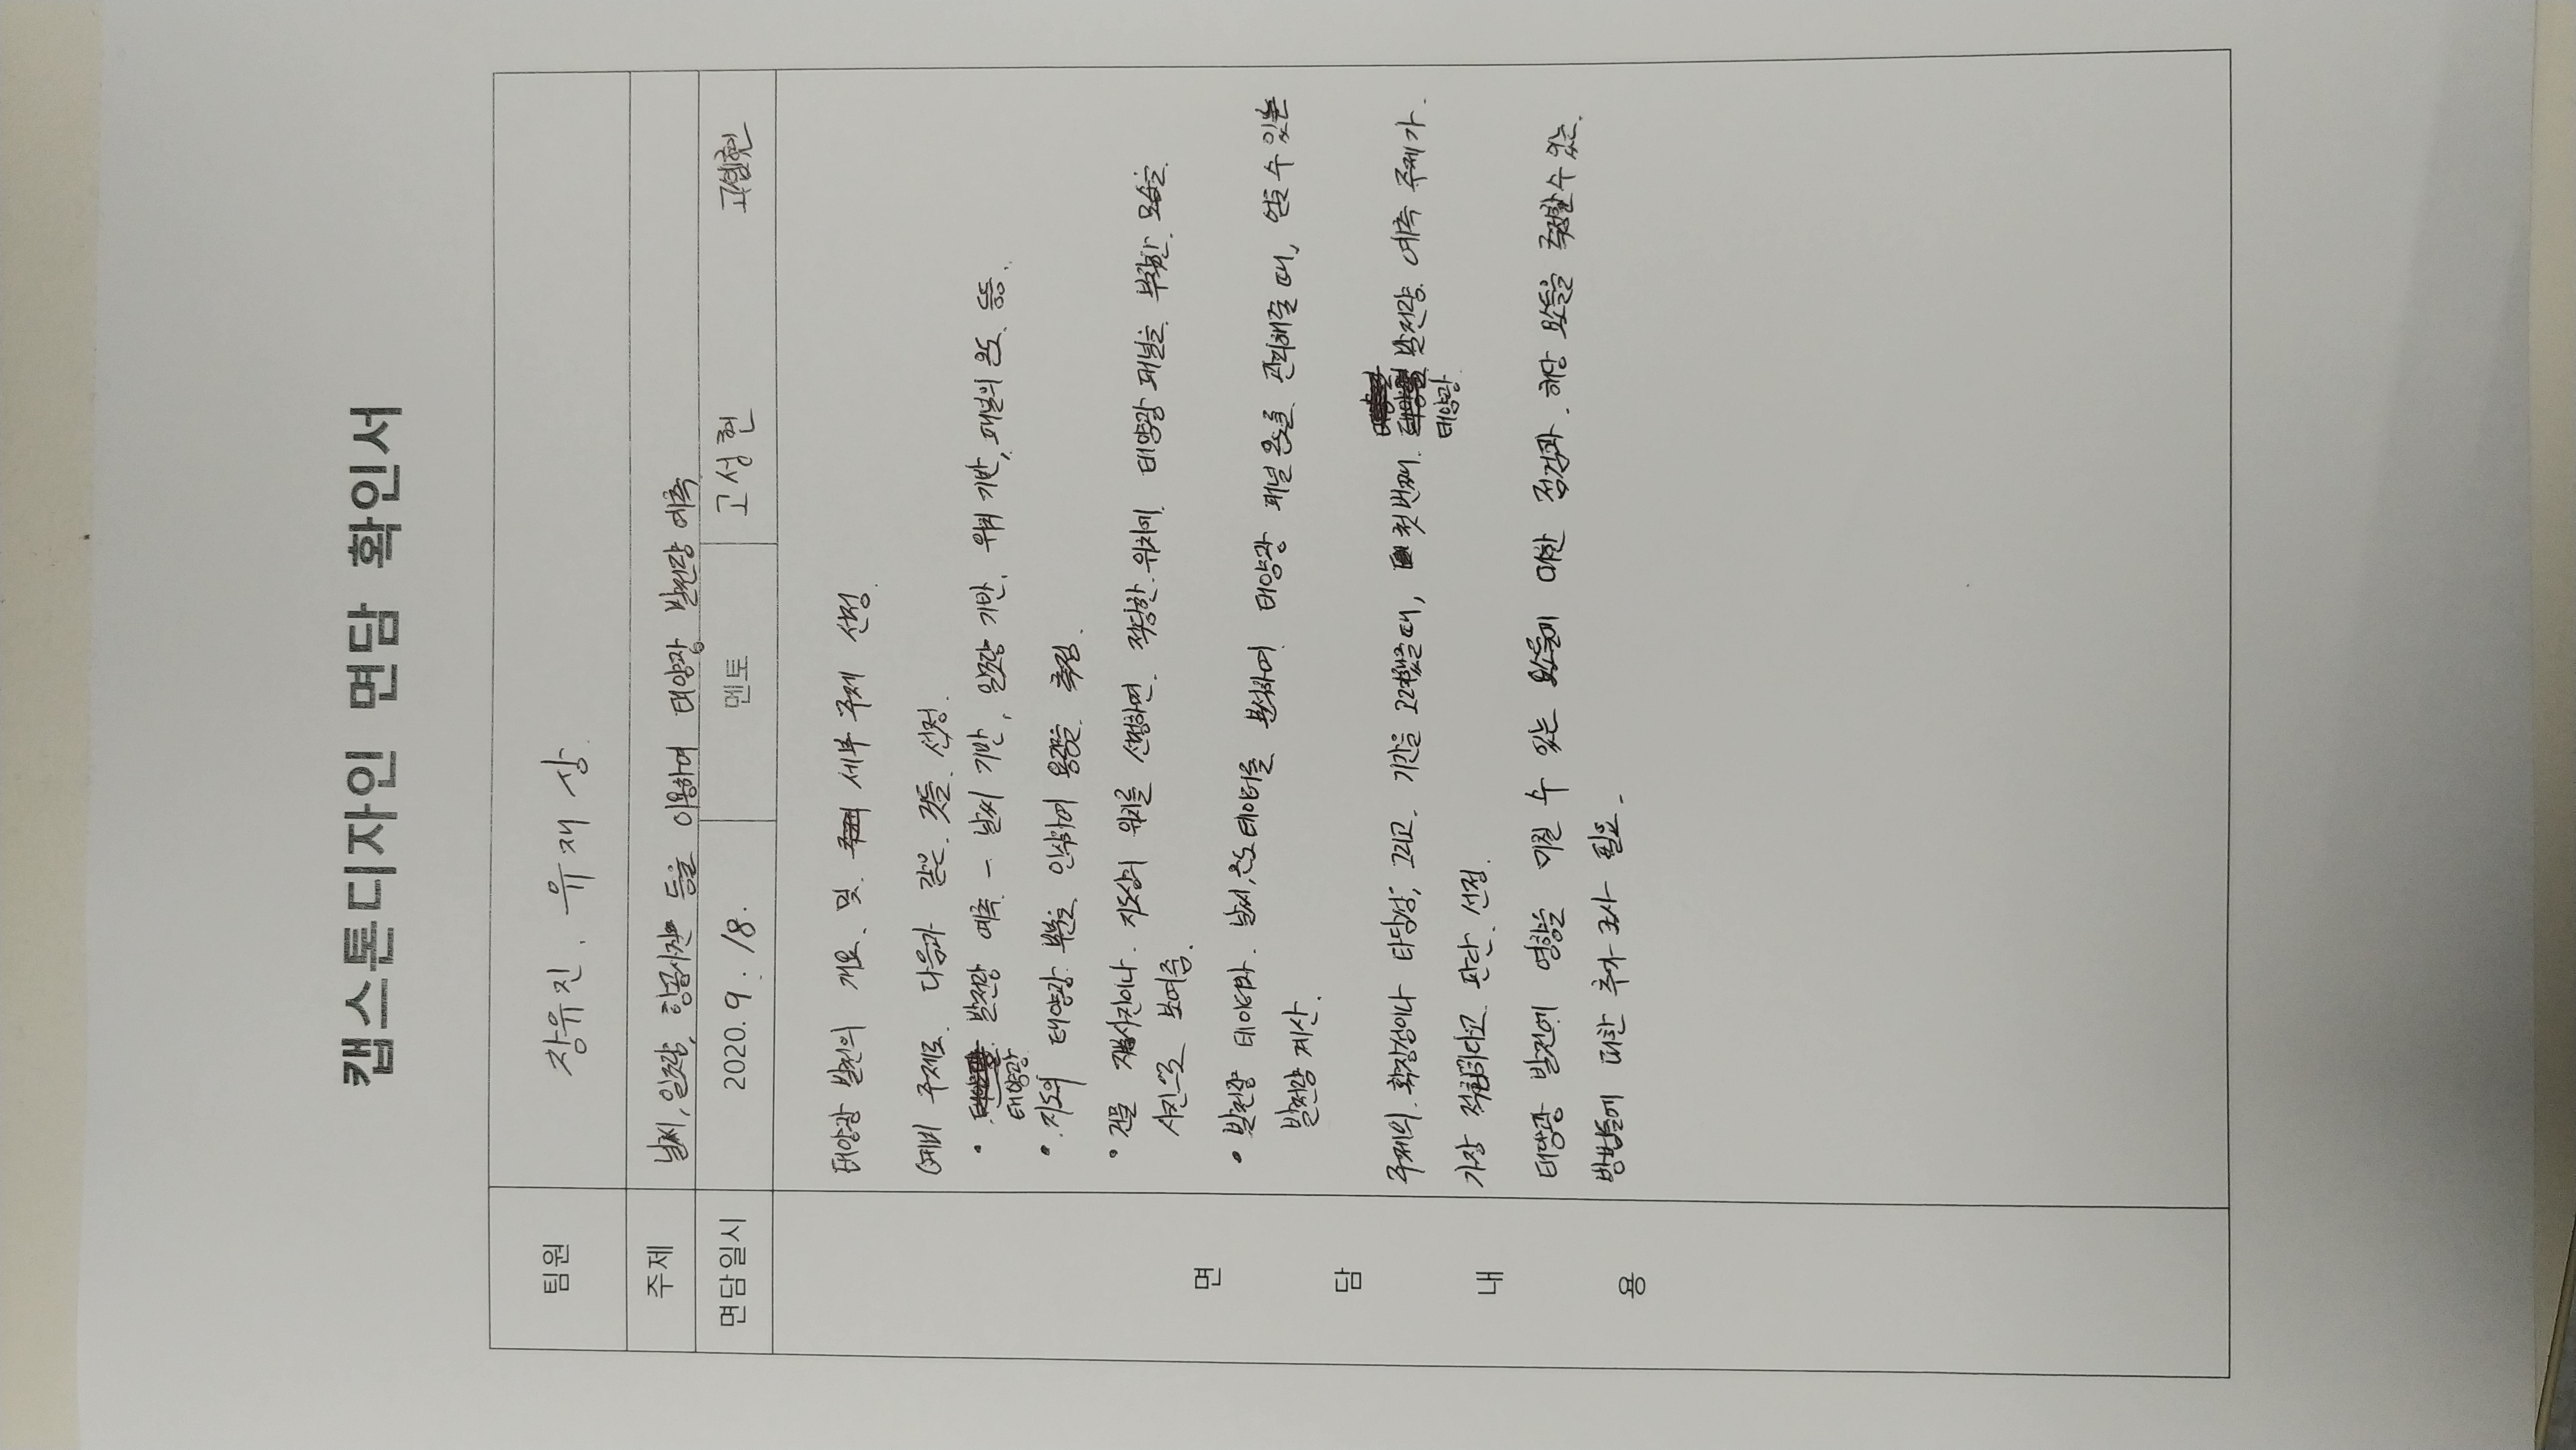 캡스톤디자인 면담 확인서
팀원 장유진, 유재상
주제 날씨, 일조량, 항공사진 등을 이용하여 태양광 발전량 예측
면담일시 2020. 9. 18. 멘토 고성현 고성현
면담내용
태양광 발전의 개요 및 세부 주제 선정.
예비 주제로 다음과 같은 것들 선정.
• 태양광 발전량 예측 - 날씨 기반, 일조량 기반, 위치 기반, 패널의 온도 등등.
• 지도의 태양광 부분을 인식하여 용량을 측정.
• 건물 사진이나 지도상의 위치를 선정하면 적당한 위치에 태양광 패널을 부착한 모습을
사진으로 보여줌.
• 발전량 데이터와 날씨, 온도 데이터를 분석하여 태양광 패널 온도를 관리해줄 때, 얻을 수 있는
발전량 계산.
주제의 확장성이나 타당성, 그리고 기간을 고려했을 때, 첫 번째 태양광 발전량 예측 주제가
가장 적합하다고 판단 선정.
태양광 발전에 영향을 미칠 수 있는 요소들에 대한 점검과 해당 요소들을 측정할 수 있는
방법들에 대한 추가 조사 필요.